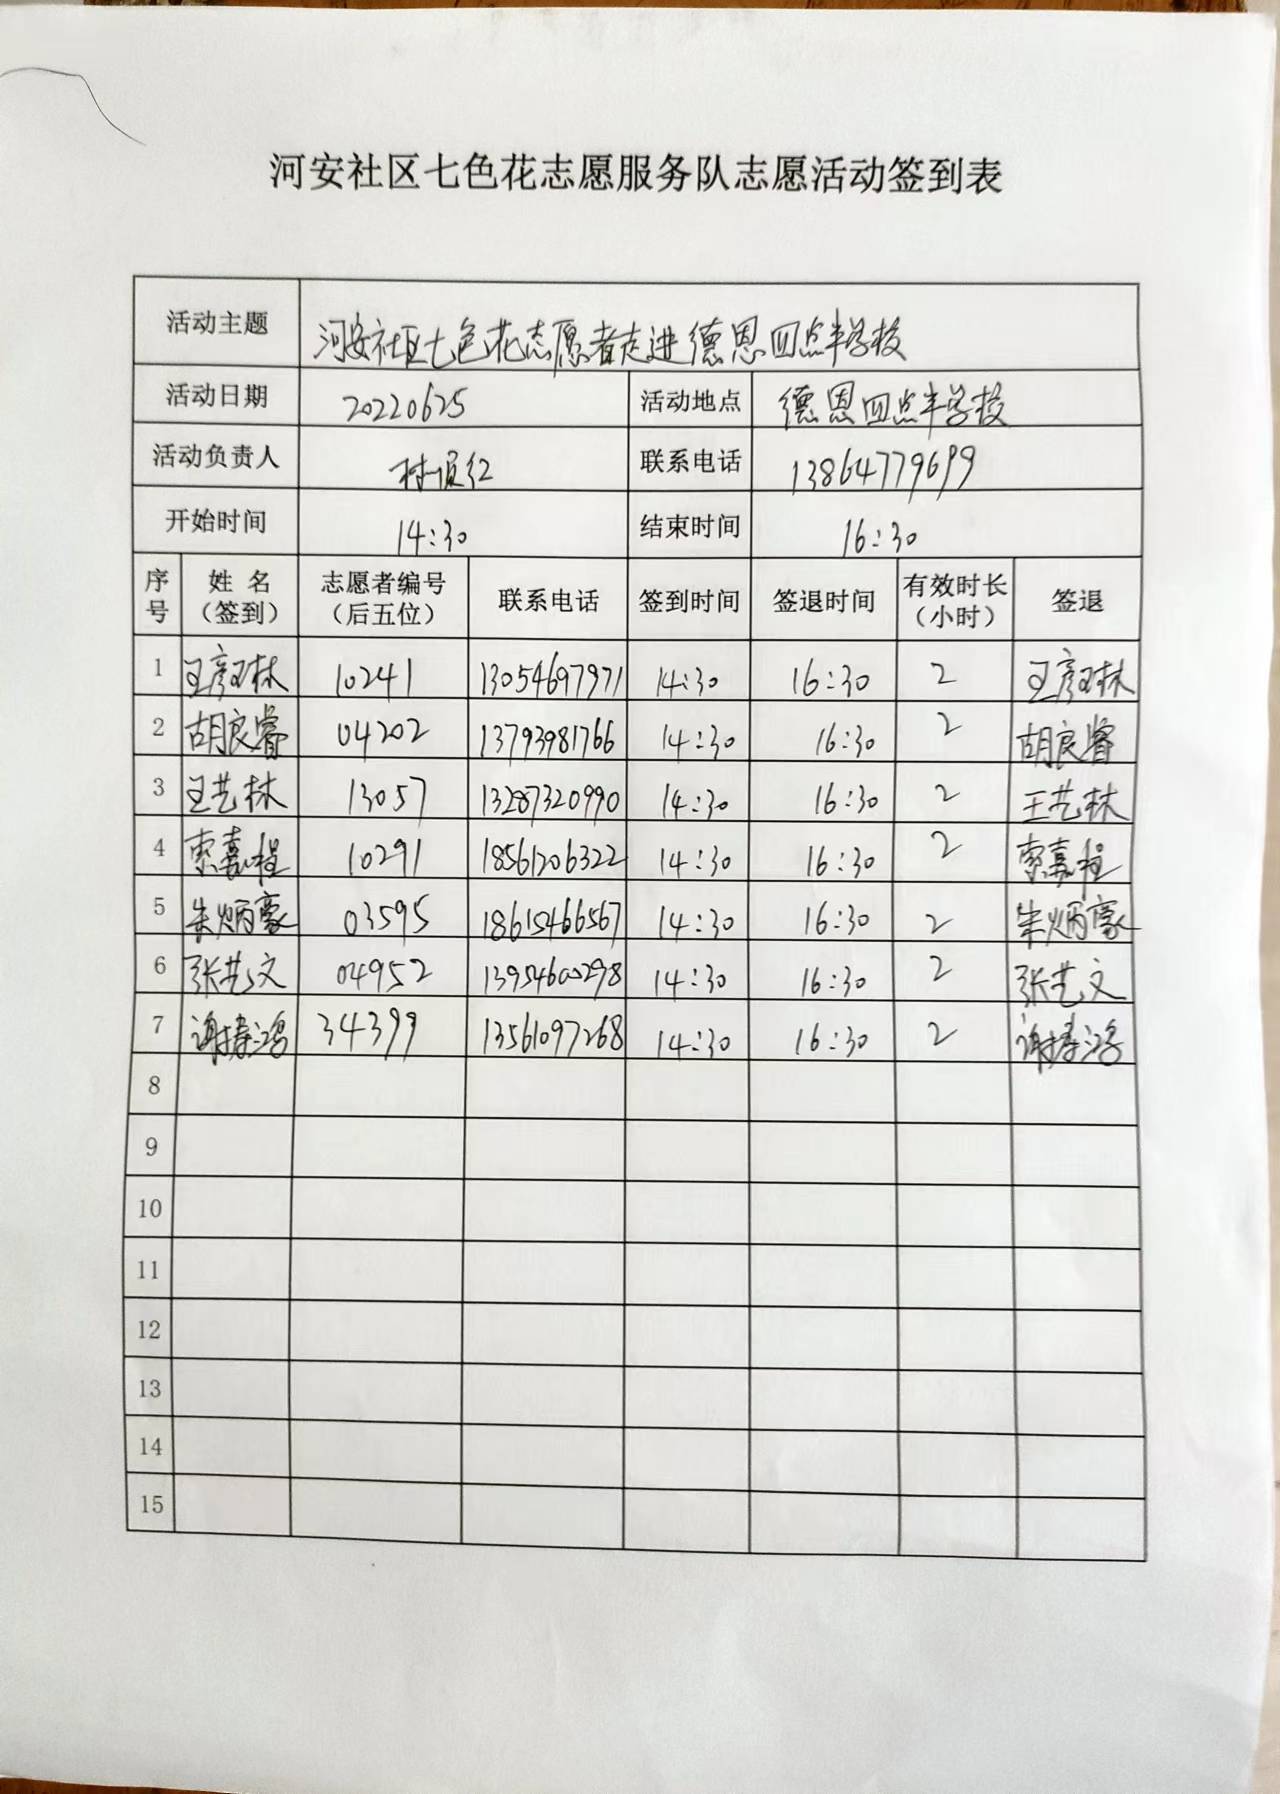 河安社区七色花志愿服务队志愿活动签到表
活动主题 河安社区七色花志愿者走进德恩四点半学校
活动日期 20220625 活动地点 德恩四点半学校
活动负责人 联系电话 13864779699
开始时间 14:30 结束时间 16:30
序号 姓名（签到） 志愿者编号（后五位） 联系电话 签到时间 签退时间 有效时长（小时） 签退
1 王彦林 10241 13054697971 14:30 16:30 2 王彦林
2 胡良睿 04202 13793981766 14:30 16:30 2 胡良睿
3 王艺林 13057 13287320990 14:30 16:30 2 王艺林
4 索嘉程 10291 18561206322 14:30 16:30 2 索嘉程
5 朱炳豪 03595 18615466567 14:30 16:30 2 朱炳豪
6 张艺文 04952 13954600298 14:30 16:30 2 张艺文
7 34399 13561097268 14:30 16:30 2
8
9
10
11
12
13
14
15